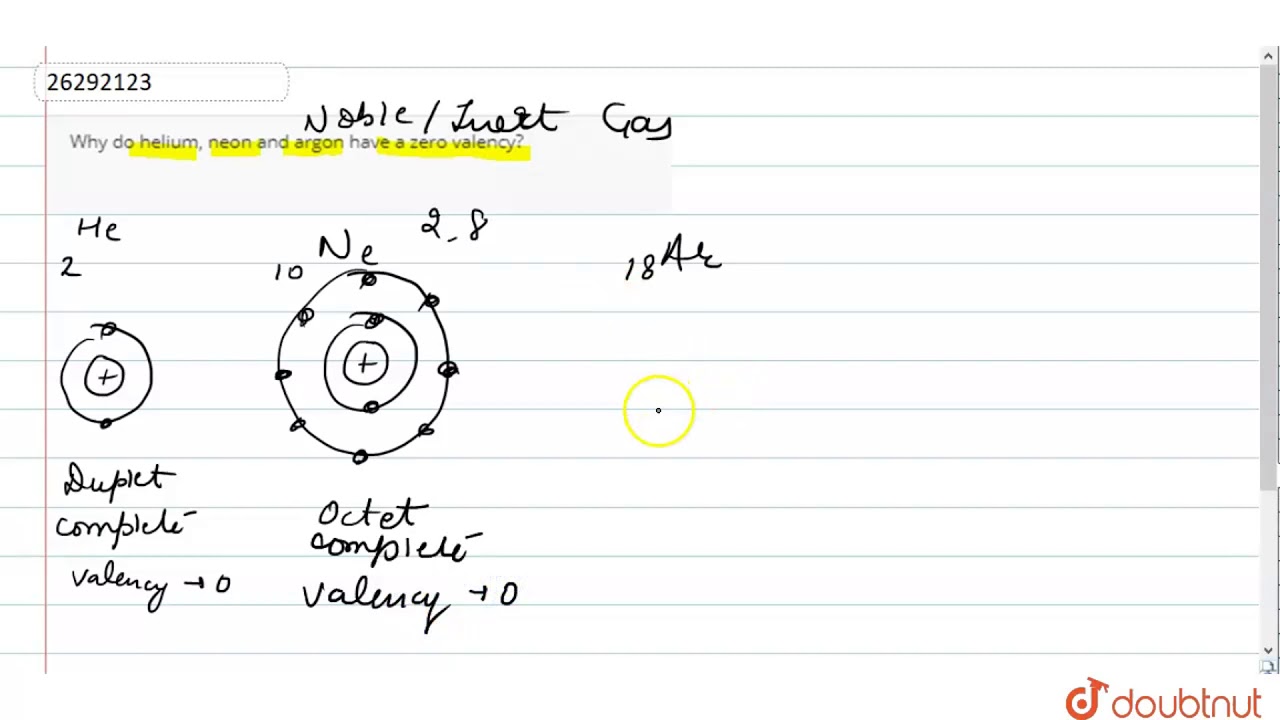 26292123
Noble/Inert Gas
Why do helium, neon and argon have a zero valency?
He
2
Ne
10
2.8
18Ar
+
+
Duplet
complete
valency → 0
Octet
complete
valency → 0
doubtnut